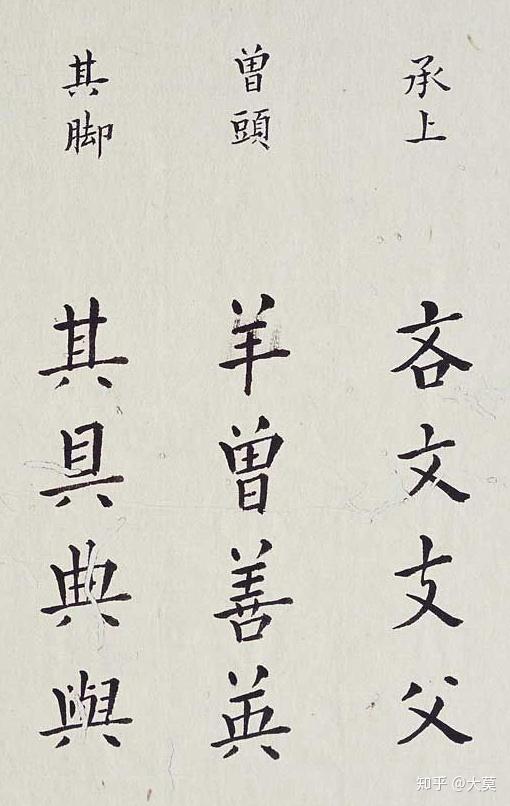 承上
吝文支父
曾頭
羊曾善英
其脚
其具典與
知乎 @大莫